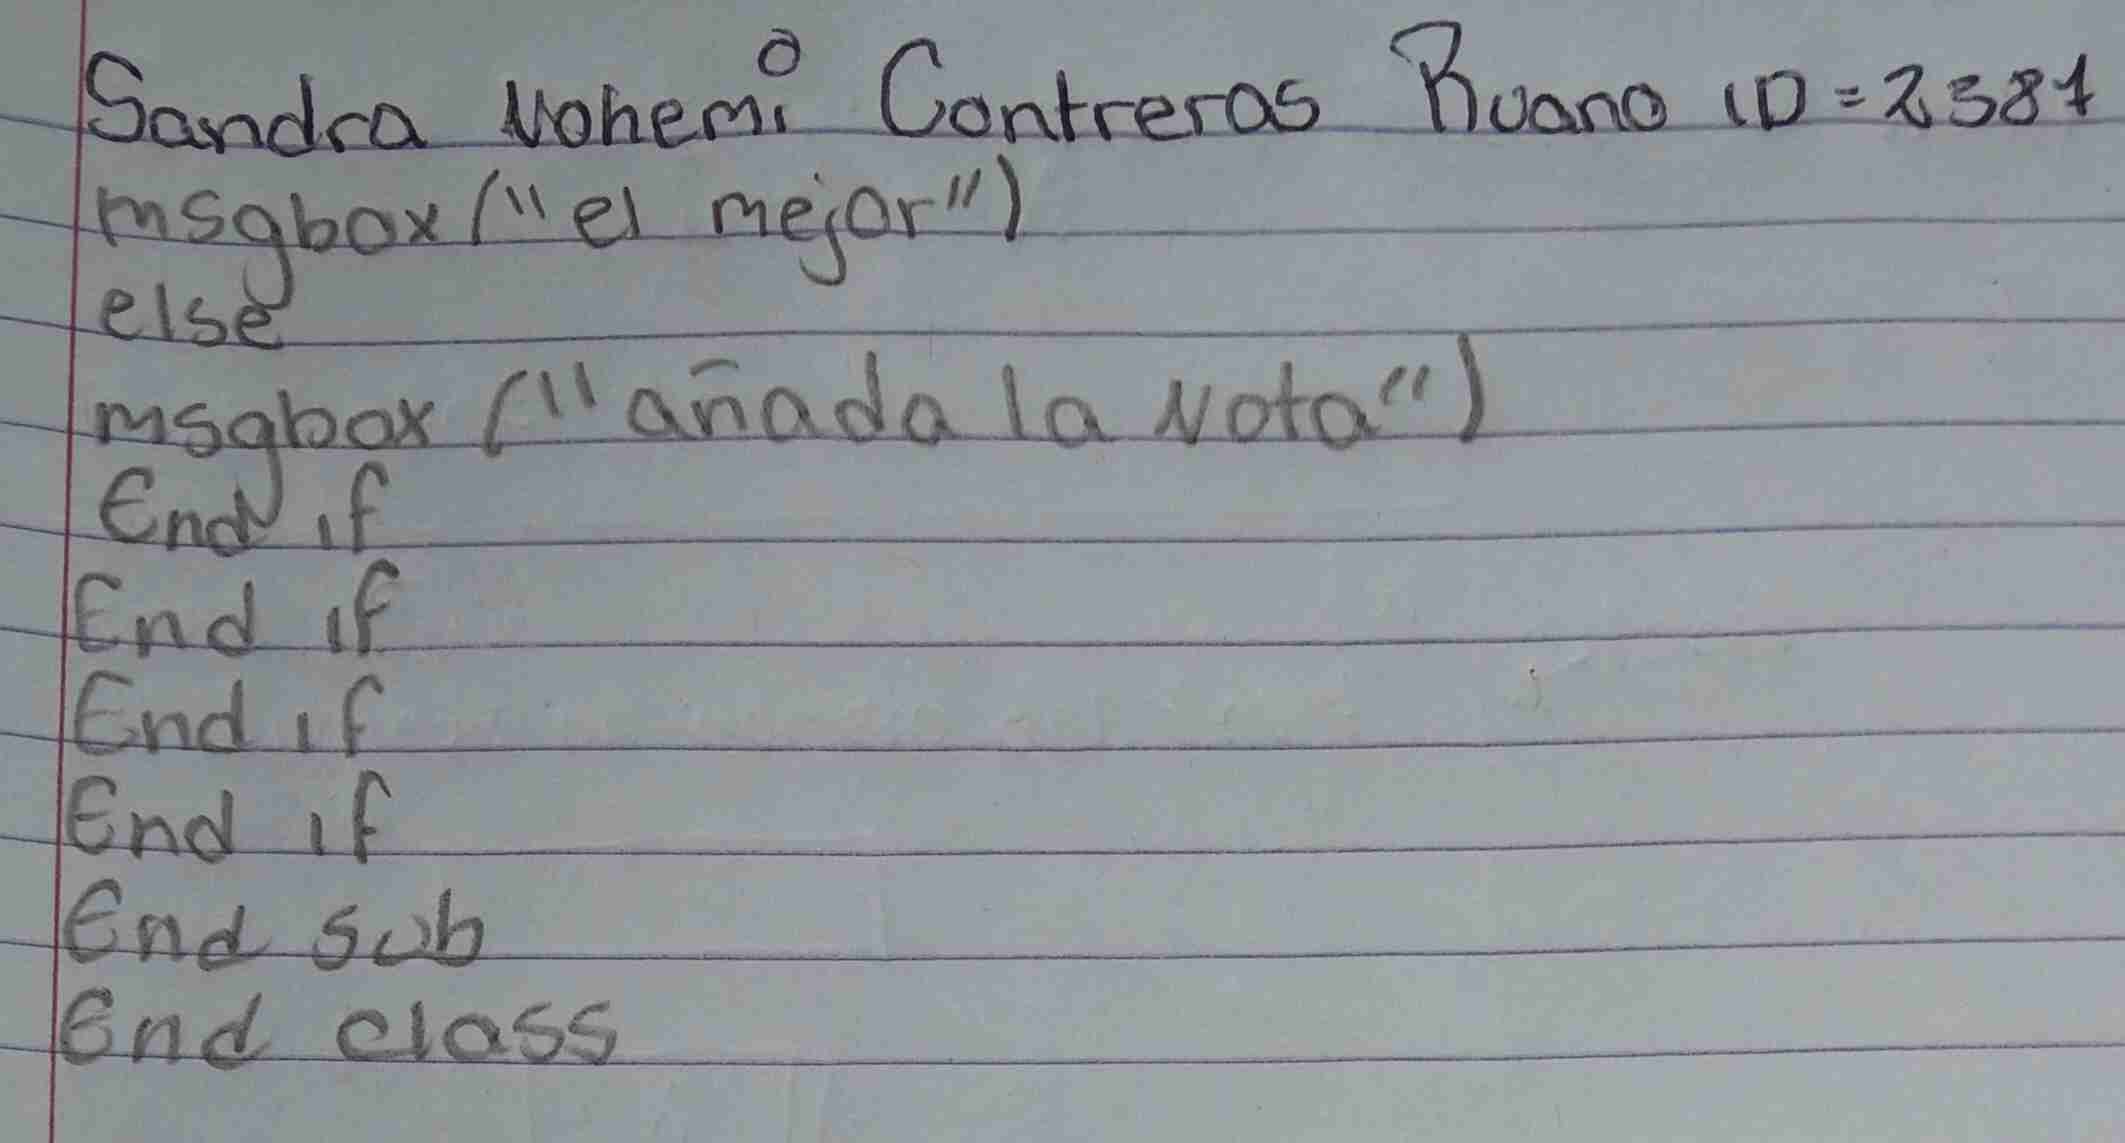 Sandra Nohemi Contreras Ruano ID = 2387
msgbox ("el mejor")
else
msgbox ("añada la Nota")
End if
End if
End if
End if
End sub
End class